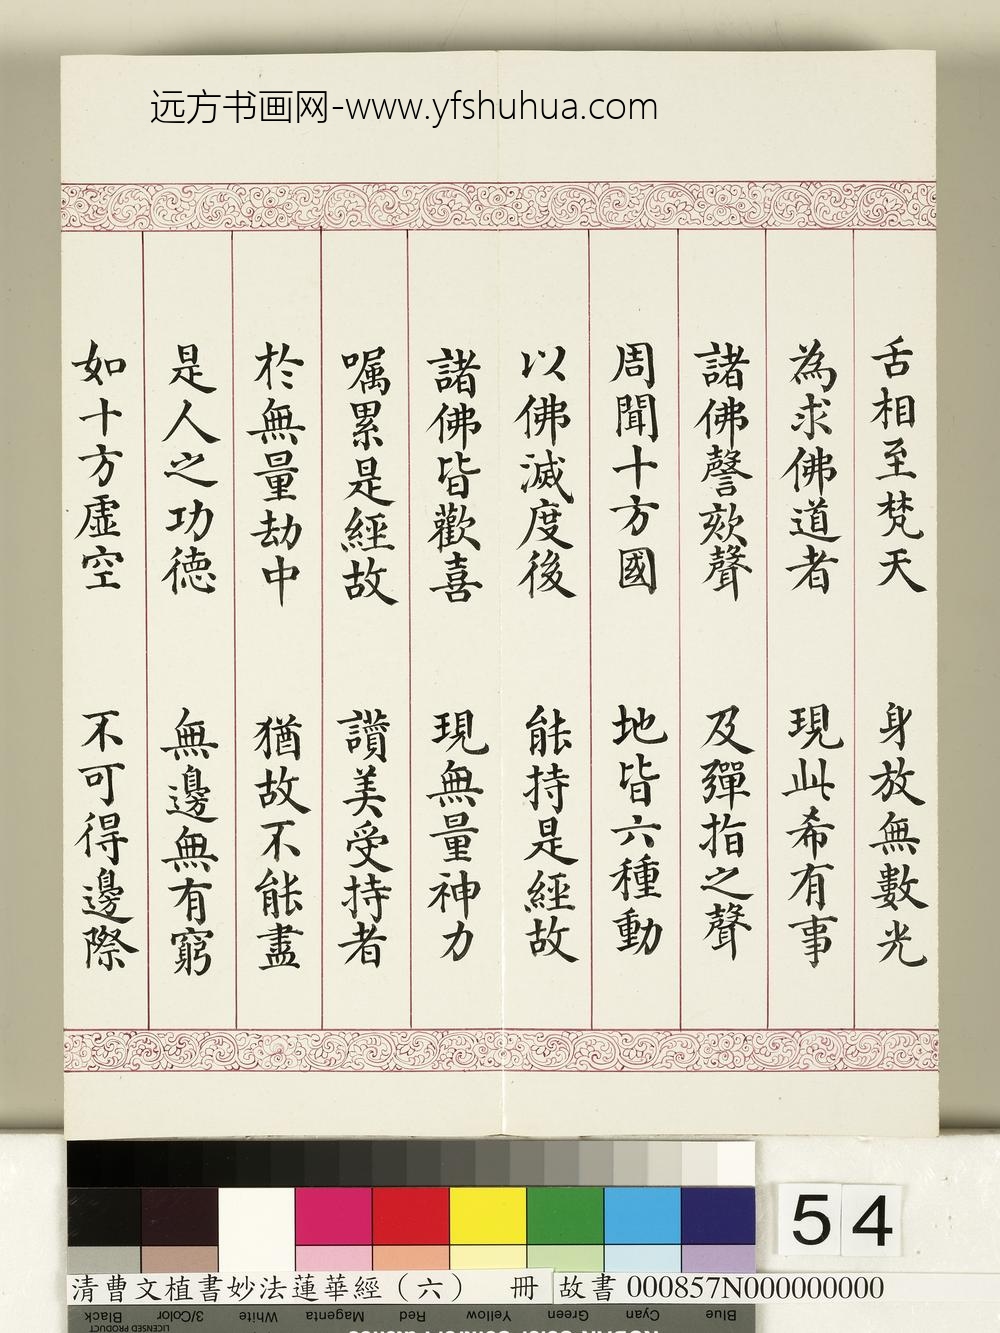 远方书画网-www.yfshuhua.com
舌相至梵天　身放無數光
為求佛道者　現此希有事
諸佛謦欬聲　及彈指之聲
周聞十方國　地皆六種動
以佛滅度後　能持是經故
諸佛皆歡喜　現無量神力
嘱累是經故　讃美受持者
於無量劫中　猶故不能盡
是人之功德　無邊無有窮
如十方虛空　不可得邊際
54
清曹文植書妙法蓮華經（六）　冊　故書 000857N000000000
Black 3/Color White Magenta Red Yellow Green Cyan Blue
LICENSED PRODUCT